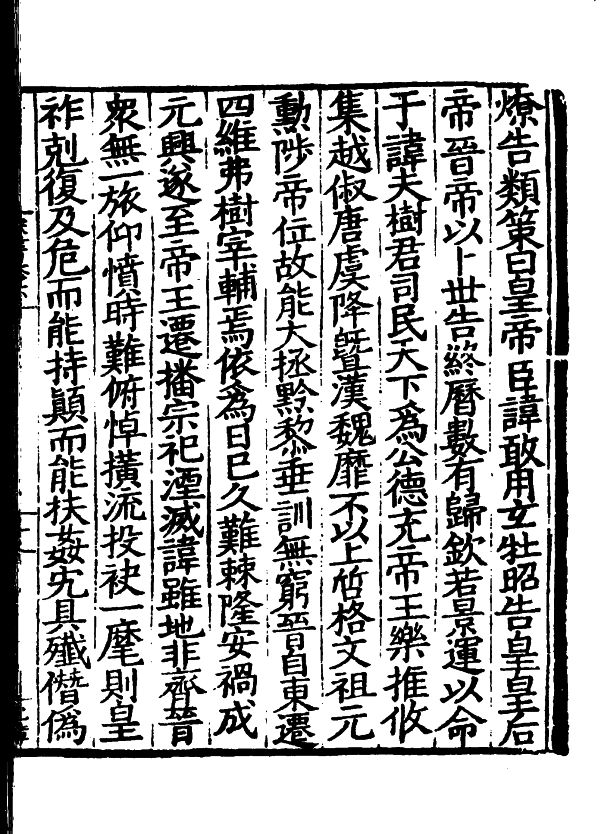 燎告類策曰皇帝臣諱敢用玄牡昭告皇皇后
帝晉帝以卜世告終曆數有歸欽若景運以命
于諱夫樹君司民天下為公德充帝王樂推攸
集越俶唐虞降曁漢魏靡不以上哲格文祖元
勲陟帝位故能大拯黔黎垂訓無窮晉自東遷
四維弗樹宰輔焉依為日已久難棘隆安禍成
元興遂至帝王遷播宗祀湮滅諱雖地非齊晉
衆無一旅仰憤時難俯悼橫流投袂一麾則皇
祚剋復及危而能持顚而能扶姦宄具殲僭偽